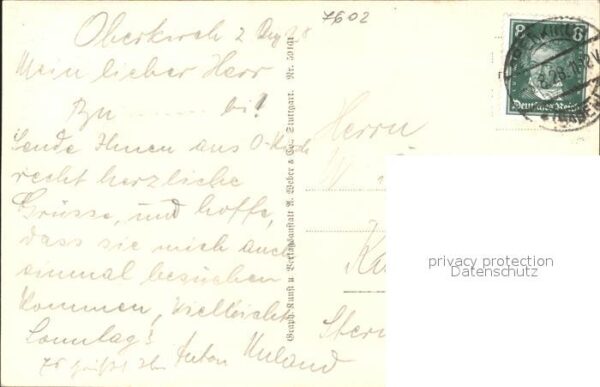 7602
Oberkirch 2 Aug 28
Mein lieber Herr
bi!
Sende Ihnen aus O-Kirch
recht herzliche
Grüsse, und hoffe,
dass sie mich auch
einmal besuchen
kommen, vielleicht
Sonntag!
Anton Uuland
Graph. Kunst u. Verlagsanstalt A. Weber & Co., Stuttgart. Nr. 50161
8 8
Deutsches Reich
Herrn
W
Ka
Stern
privacy protection
Datenschutz